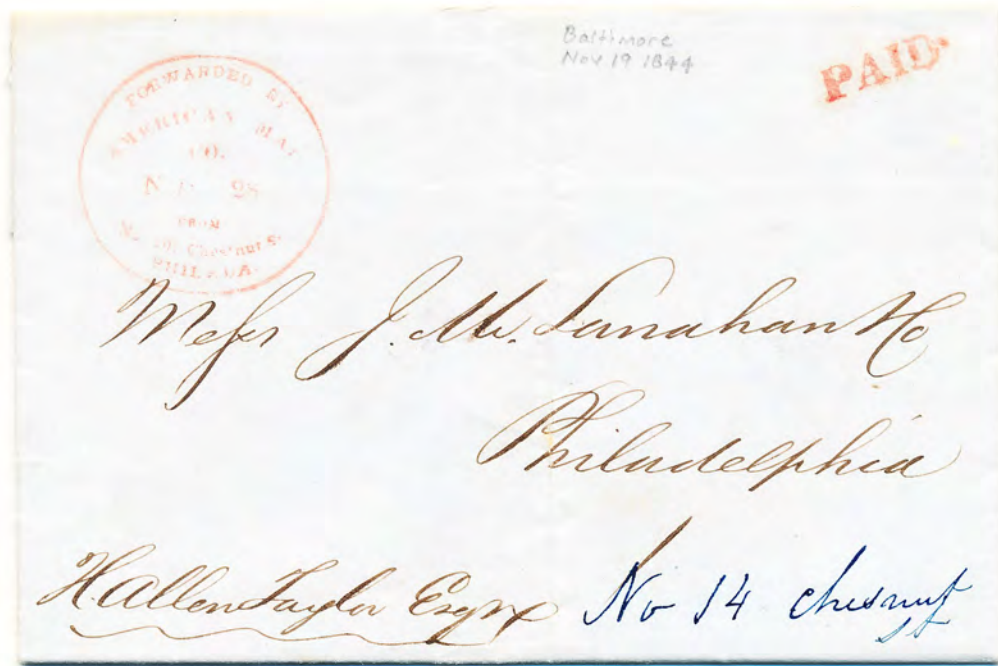 Baltimore
Nov 19 1844
PAID
FORWARDED BY
AMERICAN MAI
CO.
28
FROM
Chesnut St
PHILADA.
Messrs J. M. Lanahan & Co
Philadelphia
H. Allen Taylor Esqr
No 14 chesnut
st